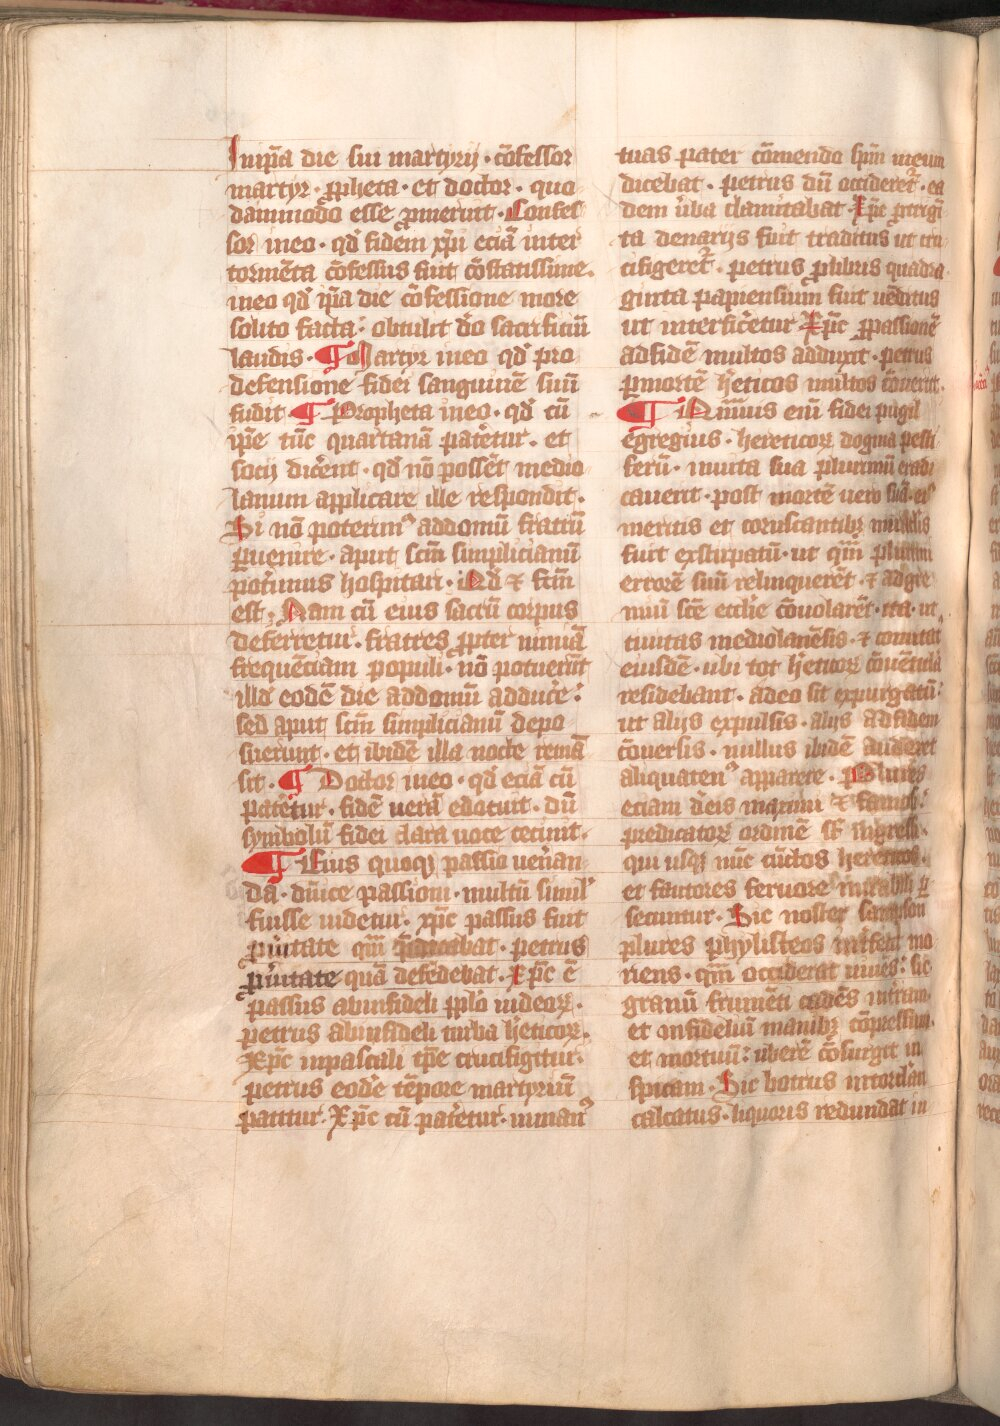 In ip̄a die sui martyrij · ɔ̄fessor
martyr · ꝓpheta · et doctor · quo
dammodo esse ꝓmeruit · Confes
sor ineo · qd̄ fidem xp̄i eciā inter
tormēta ɔ̄fessus fuit ɔ̄stātissime ·
ineo qd̄ ip̄a die cōfessione more
solito facta · obtulit deo sacrificiū
laudis · ¶ Martyr ineo qd̄ pro
defensione fidei sanguinē suū
fudit · ¶ Propheta ineo · qd̄ cū
ip̄e tūc quartanā pateretur · et
socij dicerent · qd̄ nō possēt medio
lanum applicare ille respondit ·
Si nō poterimꝰ addomū fratrū
ꝑuenire · aput scm̄ simplicianū
poterimus hospitari · Qd̄ ⁊ fcm̄
est · Nam cū eius sacrū corpus
deferretur · fratres ꝓpter nimiā
frequēciam populi · nō potuerūt
illd̄ eodē die addomū adducere :
sed aput scm̄ simplicianū depo
suerunt · et ibidē illa nocte remā
sit · ¶ Doctor ineo · qd̄ eciā cū
pateretur · fidē uerā edocuit · dū
symbolū fidei clara uoce cecinit ·
¶ Eius quoqꝫ passio ueneran
da · dn̄ice passioni · multū simil
fuisse uidetur · xp̄c passus fuit
ꝓ ueritate quā p̄dicabat · petrus
ꝓ ueritate quā defēdebat · xp̄c ē
passus abinfideli pplo iudeoꝝ ·
petrus abinfideli turba hereticoꝝ ·
Xp̄c inpascali tp̄e crucifigitur ·
petrus eodē tēpore martyriū
patitur · Xp̄c cū pateretur · inmanꝰ
tuas pater cōmendo sp̄m meum
dicebat · petrus dū occideretur · ea
dem uerba clamitabat · Xp̄c ꝓ trigī
ta denarijs fuit traditus ut cru
cifigeretur · petrus ꝓ libris quadra
ginta papiensium fuit uēditus
ut interficeretur · Xp̄c ꝑ passionē
adfidē multos adduxit · petrus
ꝑ mortē hereticos multos cōuertit ·
¶ Nimius eni fidei pugil
egregius · hereticoꝝ dogma pesti
ferū · inuita sua plurimū eradi
cauerit · post mortē uero suā · eiꝰ
meritis et coruscantibꝫ miraclis
fuit exstirpatū · ut qm̄ plurimi
errorē suū relinquerēt · ⁊ adgre
miū scē ecclie cōuolarēt · ita · ut
ciuitas mediolanēsis · ⁊ comitatꝰ
eiusdē · ubi tot hereticoꝝ cōuēticula
residebant · adeo sit expurgatū :
ut alijs expulsis · alijs adfidem
cōuersis · nullus ibidē auderet
aliquatenꝰ apparere · Plures
eciam deis maximi ⁊ famosi ·
predicatoꝝ ordinē sūt ingressi ·
qui usqꝫ nūc cūctos hereticos ·
et fautores feruore mirabili ꝑ
secuntur · Sic noster sampson
plures phylisteos interfecit mo
riens · quā occiderat uiuēs : sic
granū frumēti cadēs interram ·
et infideliū manibꝫ cōpressum ·
et mortuū : uberē cōsurgit in
spicam · Sic botrus intorclari
calcatus · liquoris redundat in